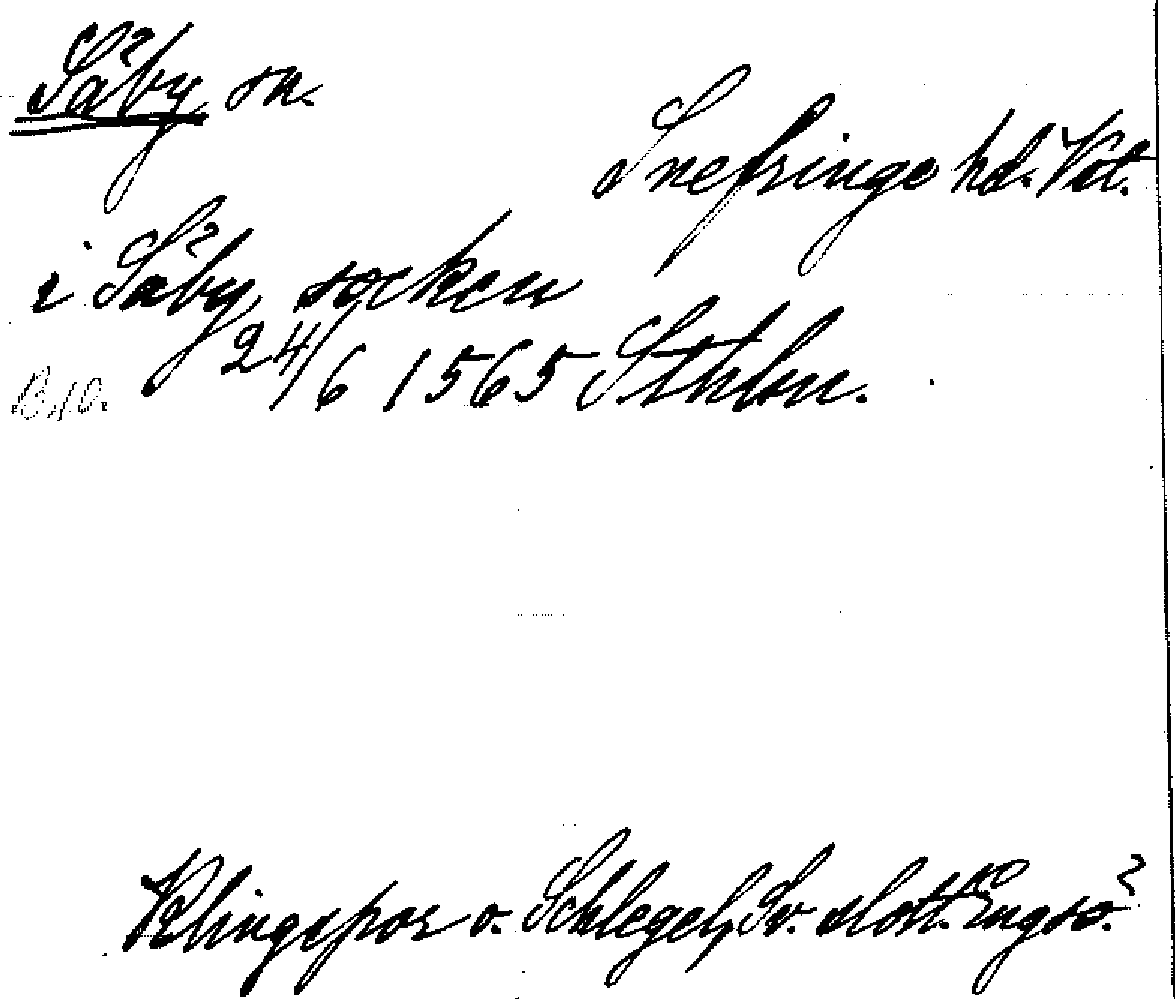 Säby sn.
Snefringe hd. Vstl.
i Säby socken
24/6 1565 Sthlm.
B.10.
Klingspor o. Schlegel, Sv. slott. Engsö.